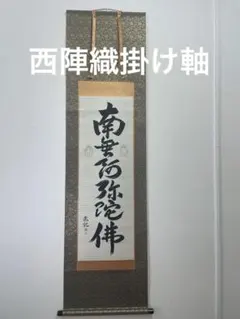 西陣織掛け軸
南無阿弥陀佛